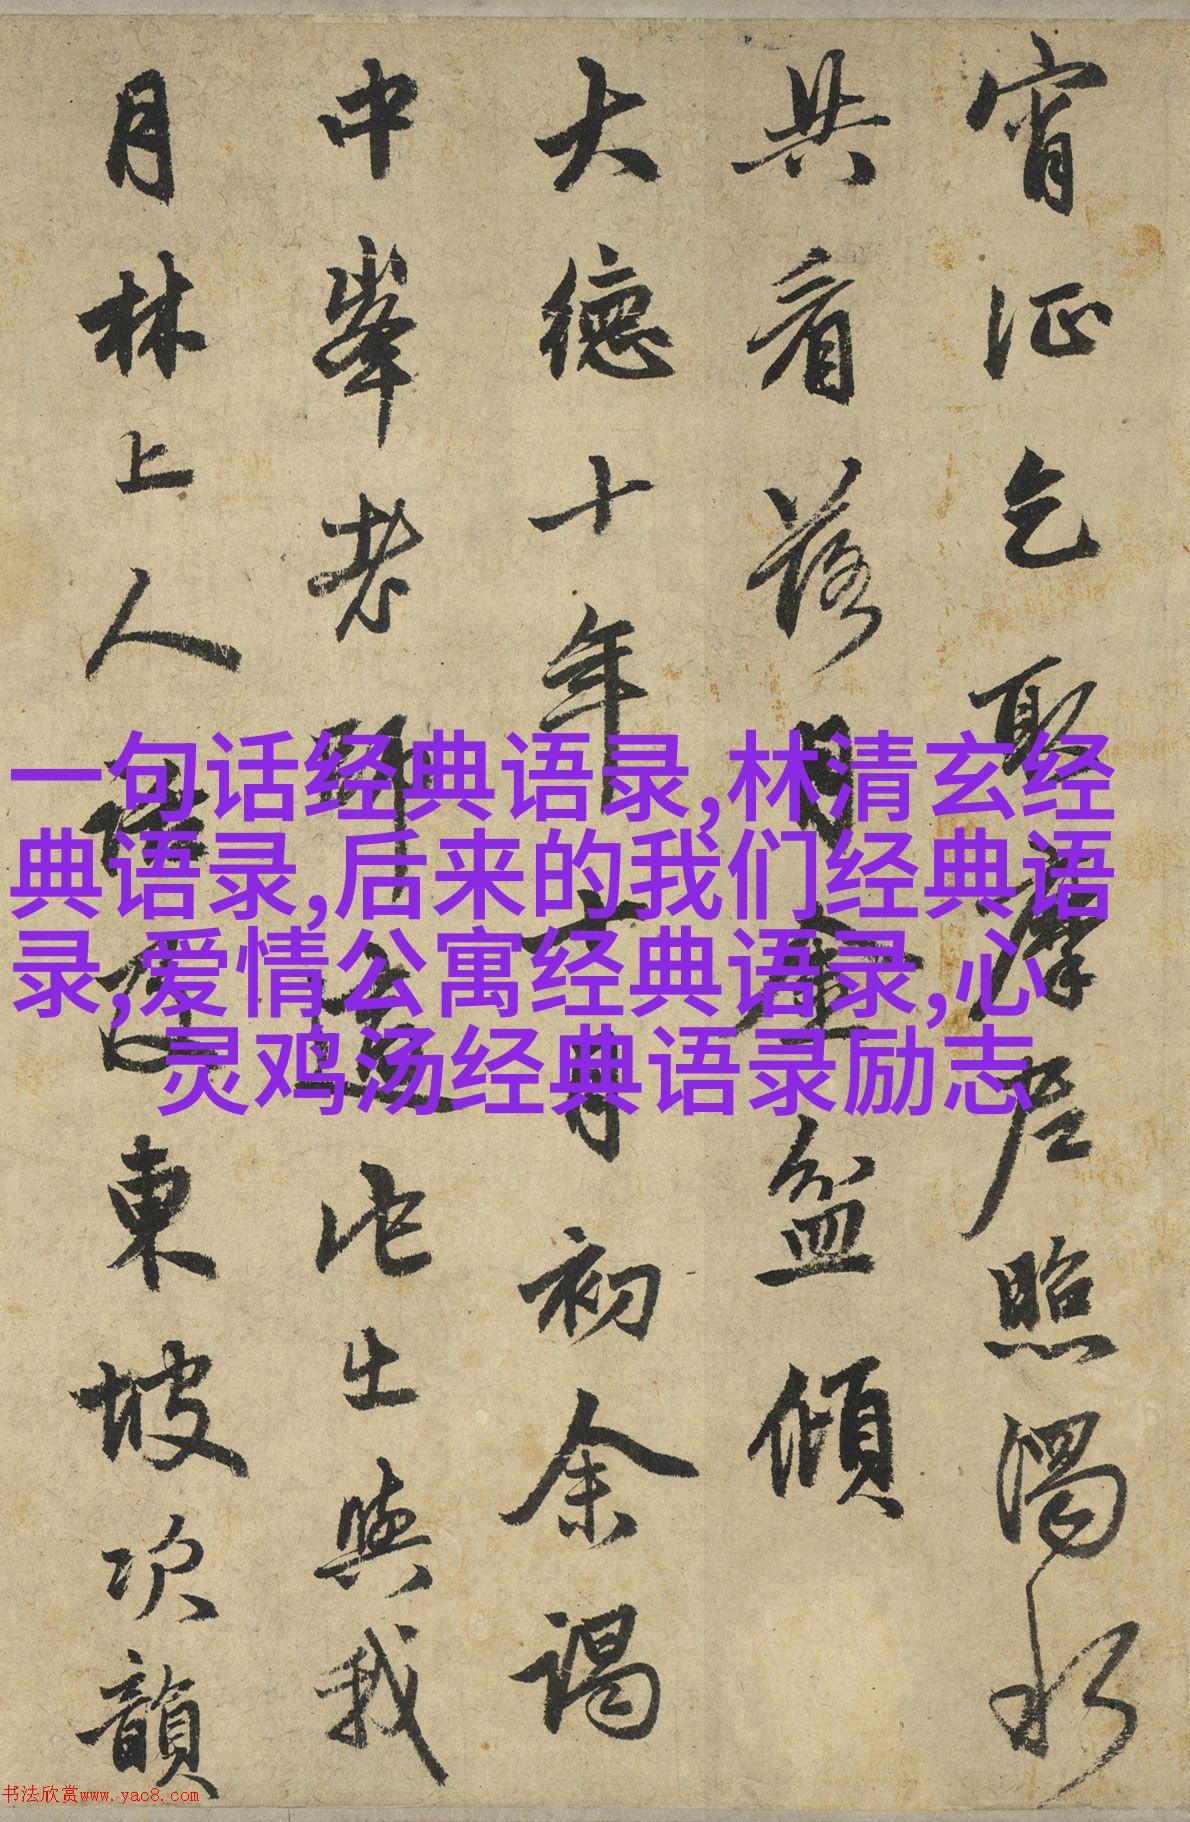 宵征乞取摩尼照濁水
共看落月金盆傾
大德十年月初余謁
中峯老師他出與我
月林上人語及東坡次韻
一句话经典语录,林清玄经
典语录,后来的我们经典语
录,爱情公寓经典语录,心
灵鸡汤经典语录励志
书法欣赏www.yac8.com